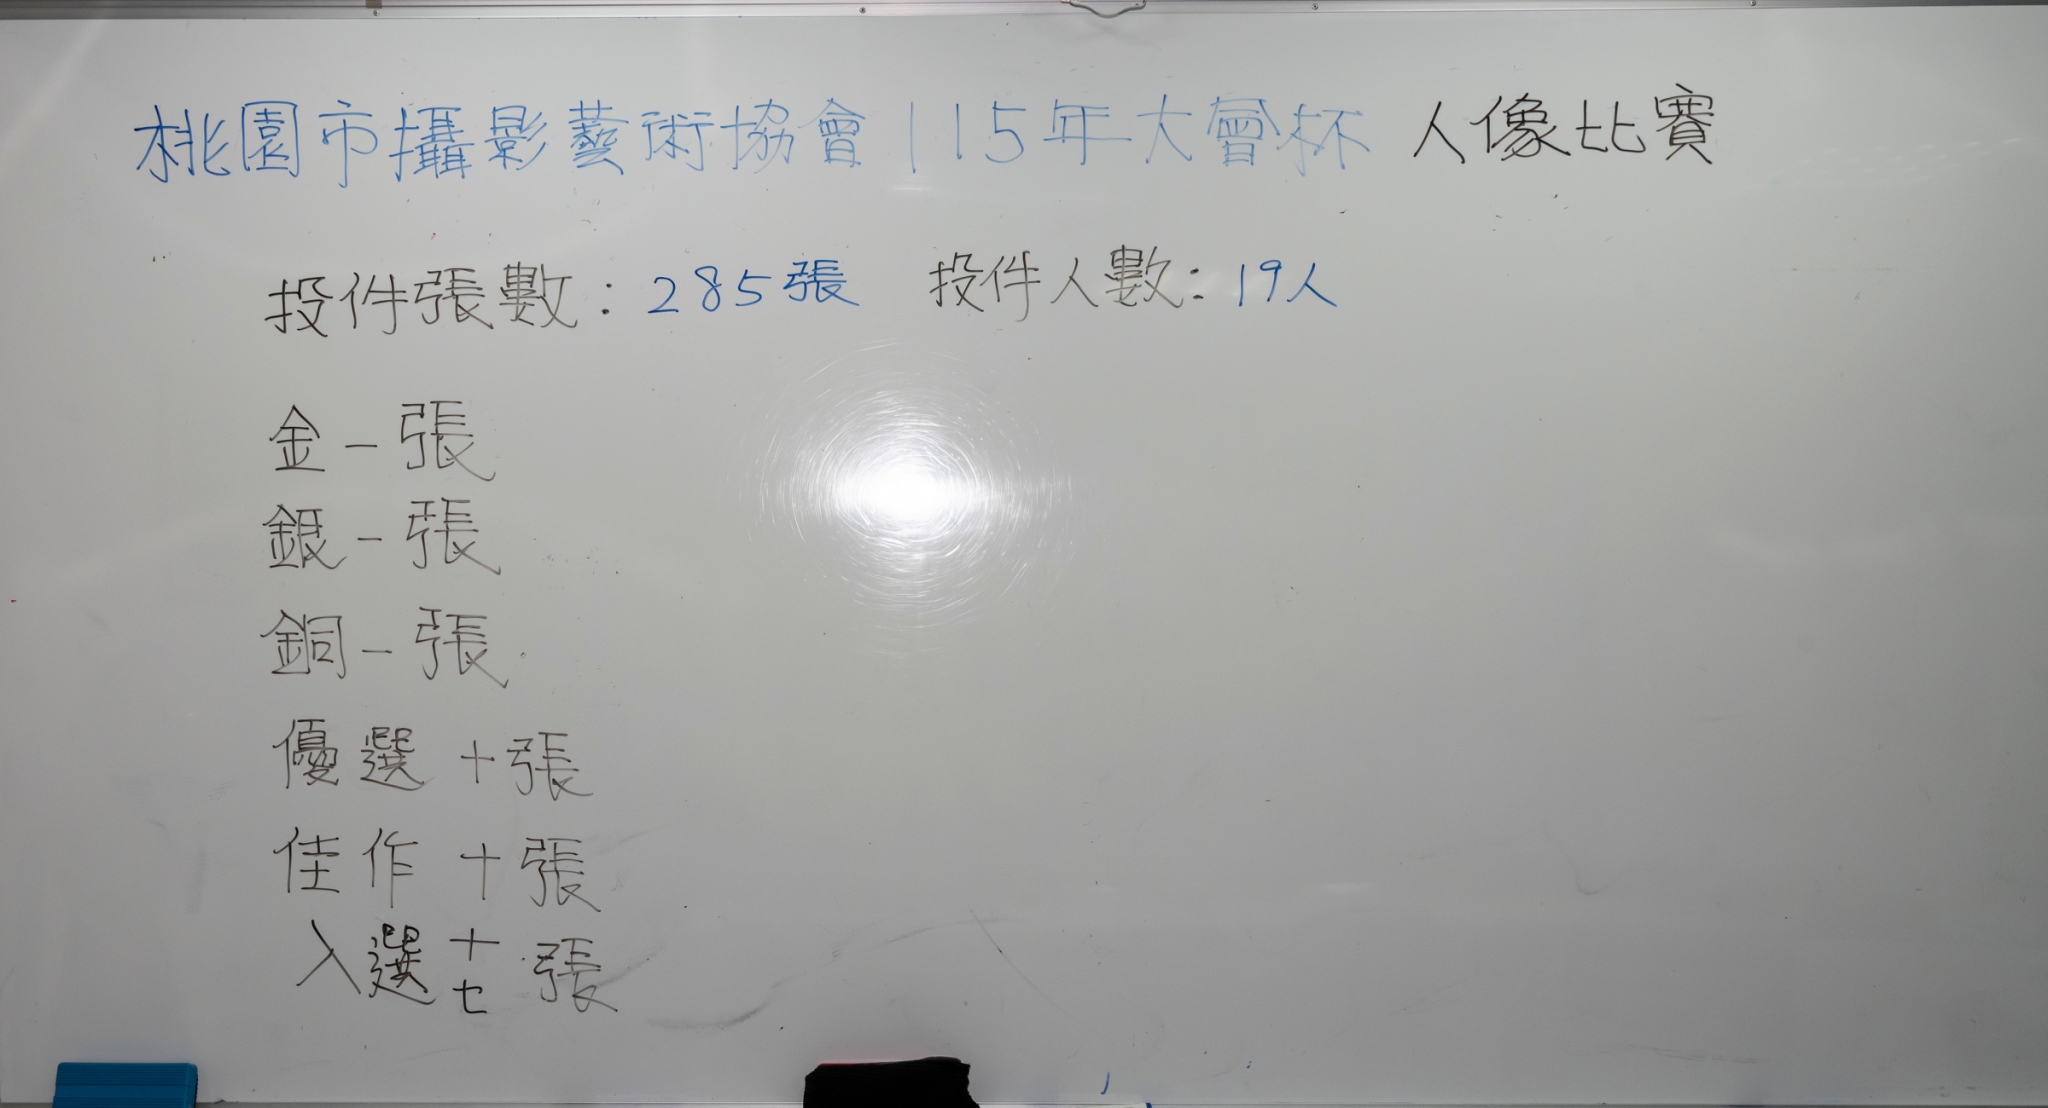 桃園市攝影藝術協會115年大會杯 人像比賽
投件張數：285張 投件人數：19人
金一張
銀一張
銅一張
優選十張
佳作十張
入選十七張